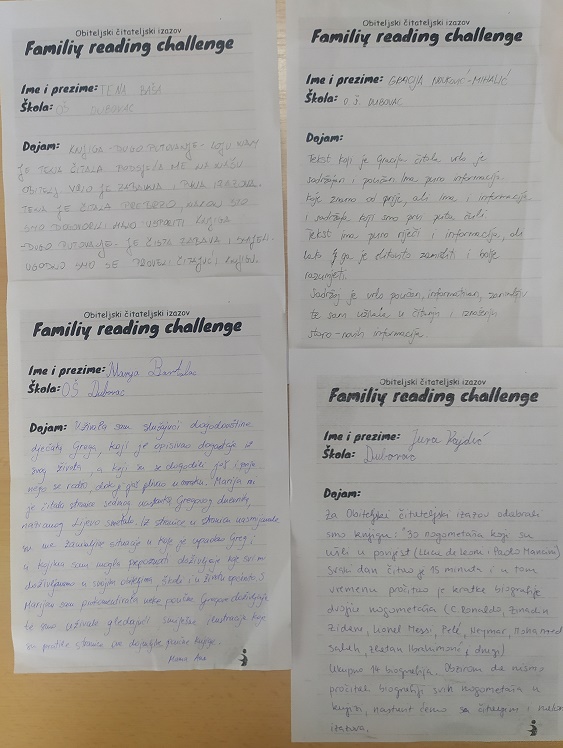 Obiteljski čitateljski izazov
Familiy reading challenge
Ime i prezime: TENA BAŠA
Škola: OŠ DUBOVAC
Dojam: KNJIGA - DUGO PUTOVANJE - KOJU NAM
JE TENA ČITALA PODSJEĆA ME NA NAŠU
OBITELJ. VRLO JE ZABAVNA I PUNA IZAZOVA.
TENA JE ČITALA PREBRZO, NAKON ŠTO
SMO DOGOVORILI MALO USPORITI KNJIGA
-DUGO PUTOVANJE- JE ČISTA ZABAVA I SMIJEH.
UGODNO SMO SE PROVELI ČITAJUĆI KNJIGU.
Obiteljski čitateljski izazov
Familiy reading challenge
Ime i prezime: GRACIJA NOVKOVIĆ-MIHALIĆ
Škola: OŠ DUBOVAC
Dojam:
Tekst koji je Gracija čitala vrlo je
sadržajan i poučan. Ima puno informacija
koje znamo od prije, ali ima i informacija
i sadržaja koji smo prvi puta čuli.
Tekst ima puno riječi i informacija, ali
lako ga je zamisliti i bolje
razumjeti.
Sadržaj je vrlo poučan, informativan, zanimljiv
te sam uživala u čitanju i iznošenju
staro-novih informacija.
Obiteljski čitateljski izazov
Familiy reading challenge
Ime i prezime: Marija
Škola: OŠ Dubovac
Dojam: Uživala sam slušajući dogodovštine
dječaka Grega, koji je opisivao događaje iz
svog života, a koji su se dogodili još i prije
nego se rodio, dok je još plivao u mraku. Marija mi
je čitala stranice sedmog nastavka Gregovog dnevnika,
nazvanog Ljevo smetalo. Iz stranice u stranicu
su me zanimljive situacije u koje je upadao Greg i
u kojima sam mogla prepoznati doživljaje koje svi mi
doživljavamo u svojim obiteljima, školi i u životu općenito. S
Marijom sam prokomentirala neke poučne Gregove doživljaje
te smo uživale gledajući smiješne ilustracije koje
su pratile stranice ove knjige.
Mama Ana
Obiteljski čitateljski izazov
Familiy reading challenge
Ime i prezime: Jura
Škola: Dubovac
Dojam:
Za Obiteljski čitateljski izazov odabrali
smo knjigu: "30 nogometaša koji su
ušli u povijest (Luca de Leone i Paolo Mancini)
Svaki dan čitao je 15 minuta i u tom
vremenu pročitao je kratke biografije
dvojice nogometaša (C. Ronaldo, Zinedin
Zidane, Lionel Messi, Pelé, Neymar, Mohamed
Salah, Zlatan Ibrahimović i drugi)
Ukupno 14 biografija. Obzirom da nismo
pročitali biografiju svih nogometaša u
knjizi, nastavit ćemo sa čitanjem i nakon
izazova.